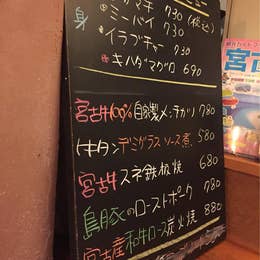 身
ミンバイ 730 (税込)
イラブチャー 730
キハダマグロ 690
宮古牛100% 自家製メンチカツ 780
牛タンデミグラスソース煮 580
宮古牛スネ鉄板焼 680
島豚のローストポーク 780
宮古産和牛ロース炭火焼 880
宮古